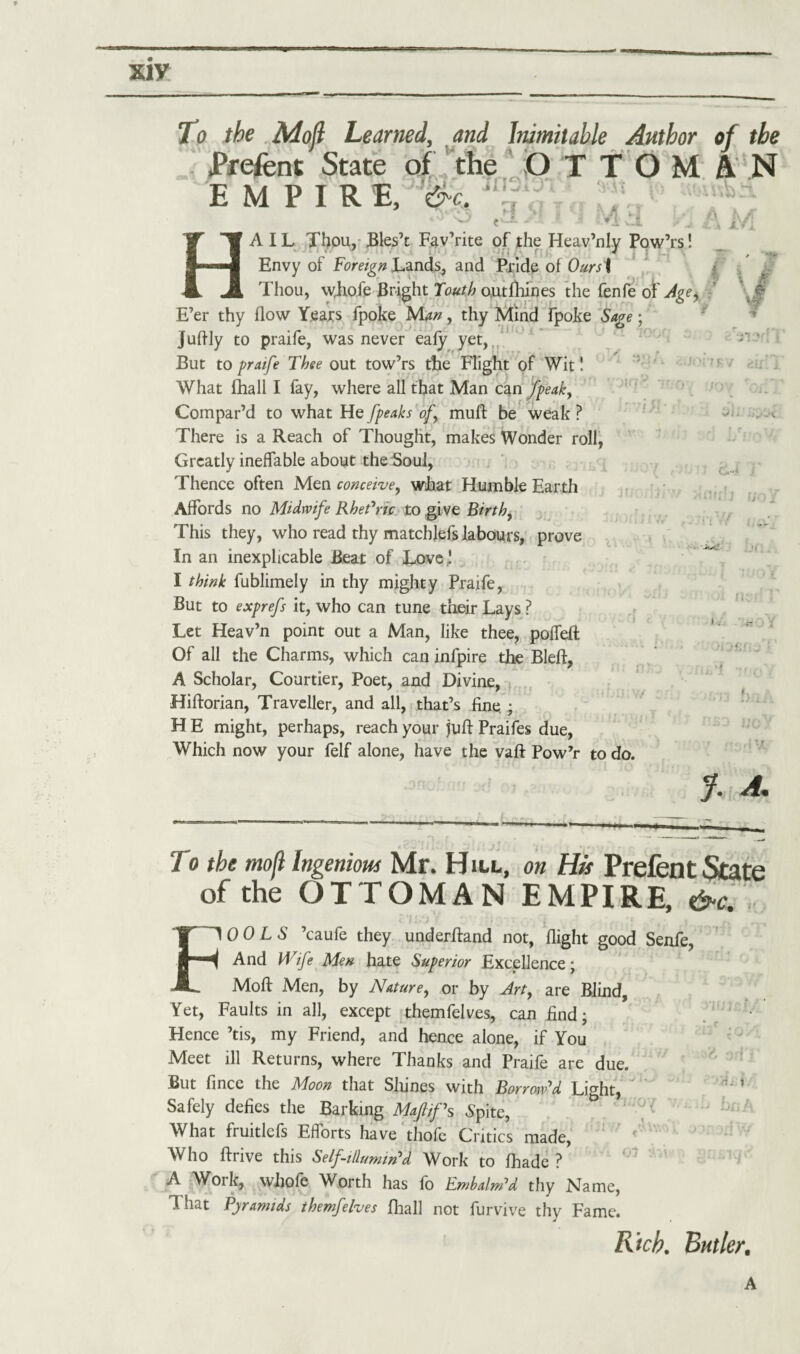 xiv
To the Moſt Learned, and Inimitable Author of the
Preſent State of the OTTOMAN
EMPIRE, &c.
HAIL Thou, Bles’t Fav’rite of the Heav’nly Pow’rs!
Envy of Foreign Lands, and Pride of Ours!
Thou, whoſe Bright Youth outſhines the ſenſe of Age,
E’er thy ſlow Years ſpoke Man, thy Mind ſpoke Sage;
Juſtly to praiſe, was never eaſy yet,
But to praiſe Thee out tow’rs the Flight of Wit!
What ſhall I ſay, where all that Man can ſpeak,
Compar’d to what He ſpeaks of, muſt be weak?
There is a Reach of Thought, makes Wonder roll,
Greatly ineffable about the Soul,
Thence often Men conceive, what Humble Earth
Affords no Midwife Rhet’ric to give Birth,
This they, who read thy matchleſs labours, prove
In an inexplicable Beat of Love!
I think ſublimely in thy mighty Praiſe,
But to expreſs it, who can tune their Lays?
Let Heav’n point out a Man, like thee, poſſeſt
Of all the Charms, which can inſpire the Bleſt,
A Scholar, Courtier, Poet, and Divine,
Hiſtorian, Traveller, and all, that’s fine;
HE might, perhaps, reach your juſt Praiſes due,
Which now your ſelf alone, have the vaſt Pow’r to do.
J. A.
To the moſt Ingenious Mr. HILL, on His Preſent State
of the OTTOMAN EMPIRE, &c.
FOOLS ’cauſe they underſtand not, ſlight good Senſe,
And Wiſe Men hate Superior Excellence;
Moſt Men, by Nature, or by Art, are Blind,
Yet, Faults in all, except themſelves, can find;
Hence ’tis, my Friend, and hence alone, if You
Meet ill Returns, where Thanks and Praiſe are due.
But ſince the Moon that Shines with Borrow’d Light,
Safely defies the Barking Maſtif’s Spite,
What fruitleſs Efforts have thoſe Critics made,
Who ſtrive this Self-illumin’d Work to ſhade?
A Work, whoſe Worth has ſo Embalm’d thy Name,
That Pyramids themſelves ſhall not ſurvive thy Fame.
Rich. Butler.
A